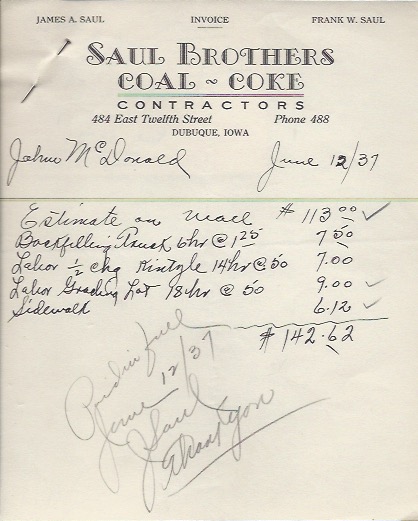 JAMES A. SAUL INVOICE FRANK W. SAUL
SAUL BROTHERS
COAL ~ COKE
CONTRACTORS
484 East Twelfth Street Phone 488
DUBUQUE, IOWA
John McDonald June 12/37
Estimate on Wall # 113 00 ✓
Backfilling Truck 6hr @ 1 25 7 50
Labor ½ chg Kintzle 14hr @ 50 7.00
Labor Grading Lot 18hr @ 50 9.00 ✓
Sidewalk 6.12 ✓
# 142.62
Paid in full
June 12/37
J Saul
Thank you